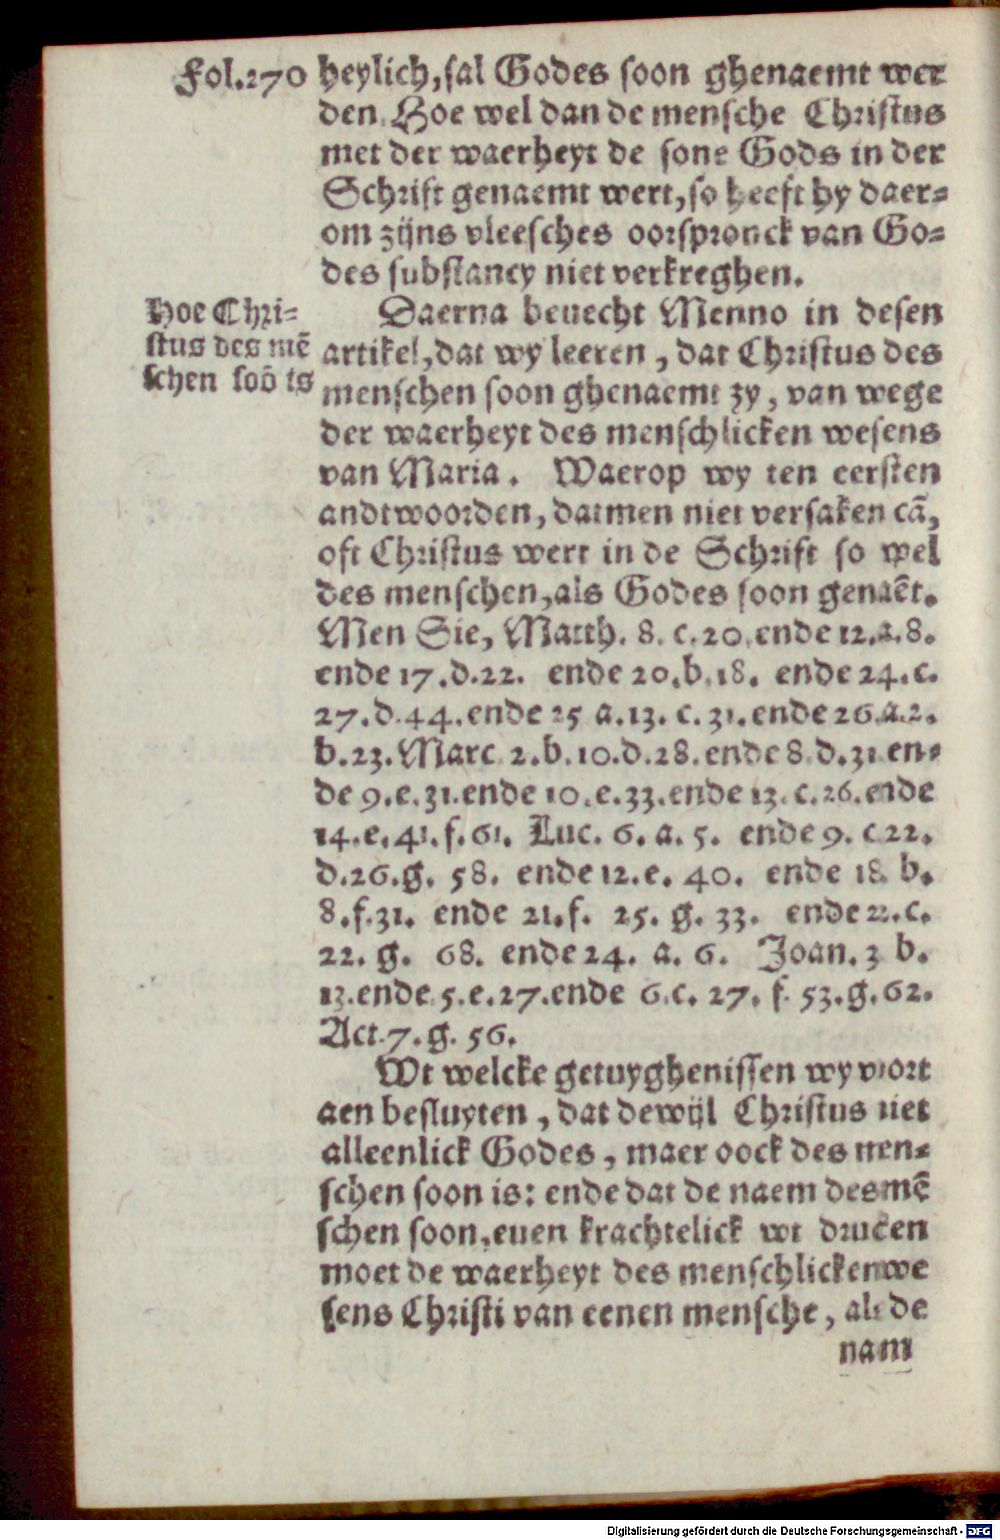 Fol.270 heylich, sal Godes soon ghenaemt wer
den. Hoe wel dan de mensche Christus
met der waerheyt de sone Gods in der
Schrift genaemt wert, so heeft hy daer-
om zijns vleesches oorspronck van Go-
des substancy niet verkreghen.
Hoe Chri-
stus des mẽ
schen soõ is
Daerna bevecht Menno in desen
artikel, dat wy leeren, dat Christus des
menschen soon ghenaemt zy, van wege
der waerheyt des menschlicken wesens
van Maria. Waerop wy ten eersten
andtwoorden, datmen niet versaken cã,
oft Christus wert in de Schrift so wel
des menschen, als Godes soon genaẽt.
Men Sie, Matth. 8. c. 20. ende 12. a. 8.
ende 17. d. 22. ende 20. b. 18. ende 24. c.
27. d. 44. ende 25 a. 13. c. 31. ende 26. a. 2.
b. 23. Marc 2. b. 10. d. 28. ende 8. d. 31. en-
de 9. e. 31. ende 10. e. 33. ende 13. c. 26. ende
14. e. 41. f. 61. Luc. 6. a. 5. ende 9. c 22.
d. 26. g. 58. ende 12. e. 40. ende 18. b.
8. f. 31. ende 21. f. 25. g. 33. ende 22. c.
22. g. 68. ende 24. a. 6. Joan. 3 b.
13. ende 5. e. 27. ende 6. c. 27. f. 53. g. 62.
Act. 7. g. 56.
Wt welcke getuyghenissen wy voort
aen besluyten, dat dewijl Christus niet
alleenlick Godes, maer oock des men-
schen soon is: ende dat de naem des mẽ
schen soon, even krachtelick wt drucken
moet de waerheyt des menschlicken we
sens Christi van eenen mensche, als de
nam
Digitalisierung gefördert durch die Deutsche Forschungsgemeinschaft - DFG